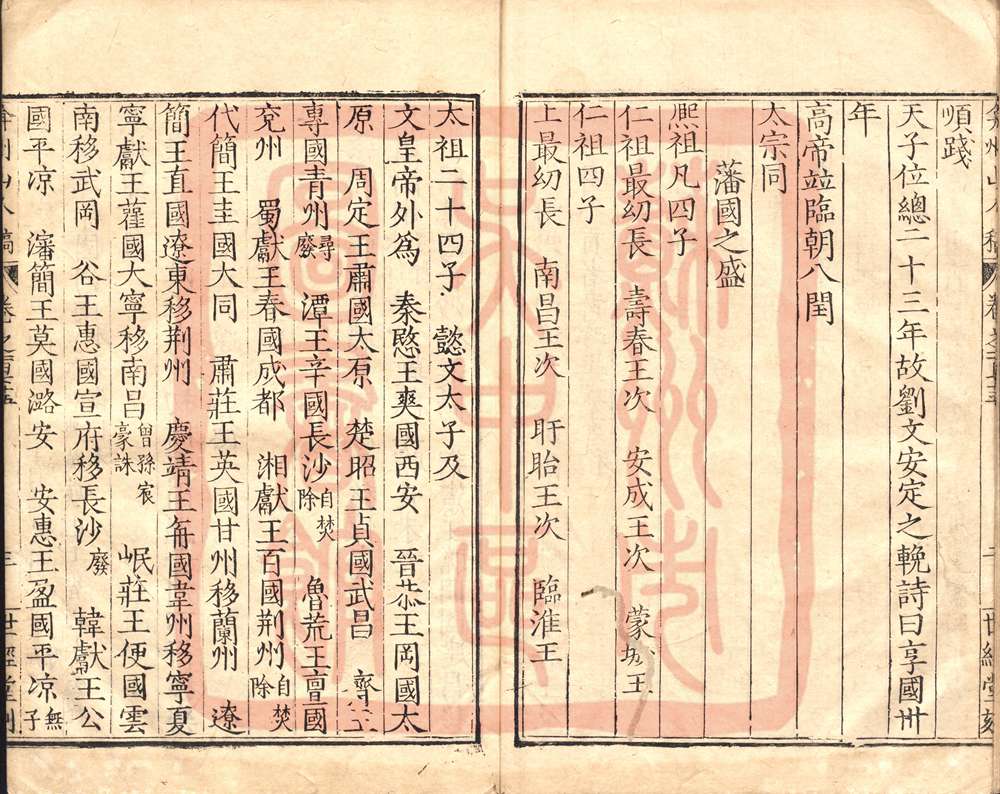 順踐
天子位總二十三年故劉文安定之輓詩曰享國卅
年
高帝竝臨朝八閏
太宗同
藩國之盛
熈祖凡四子
仁祖最㓜長 壽春王次 安成王次 蒙城王
仁祖四子
上最㓜長 南昌王次 盱眙王次 臨淮王
太祖二十四子 懿文太子及
文皇帝外爲 秦愍王爽國西安 晉恭王岡國太
原 周定王肅國太原 楚昭王貞國武昌 齊王
專國青州尋廢 潭王辛國長沙自焚除 魯荒王亶國
兗州 蜀獻王春國成都 湘獻王百國荆州自焚除
代簡王圭國大同 肅莊王英國甘州移蘭州 遼
簡王直國遼東移荆州 慶靖王㫋國韋州移寧夏
寧獻王蓶國大寧移南昌曾孫宸豪誅 岷莊王便國雲
南移武岡 谷王惠國宣府移長沙廢 韓獻王公
國平凉 瀋簡王莫國潞安 安惠王盈國平凉無子
弇州山人稿 卷之 三 世經堂刻